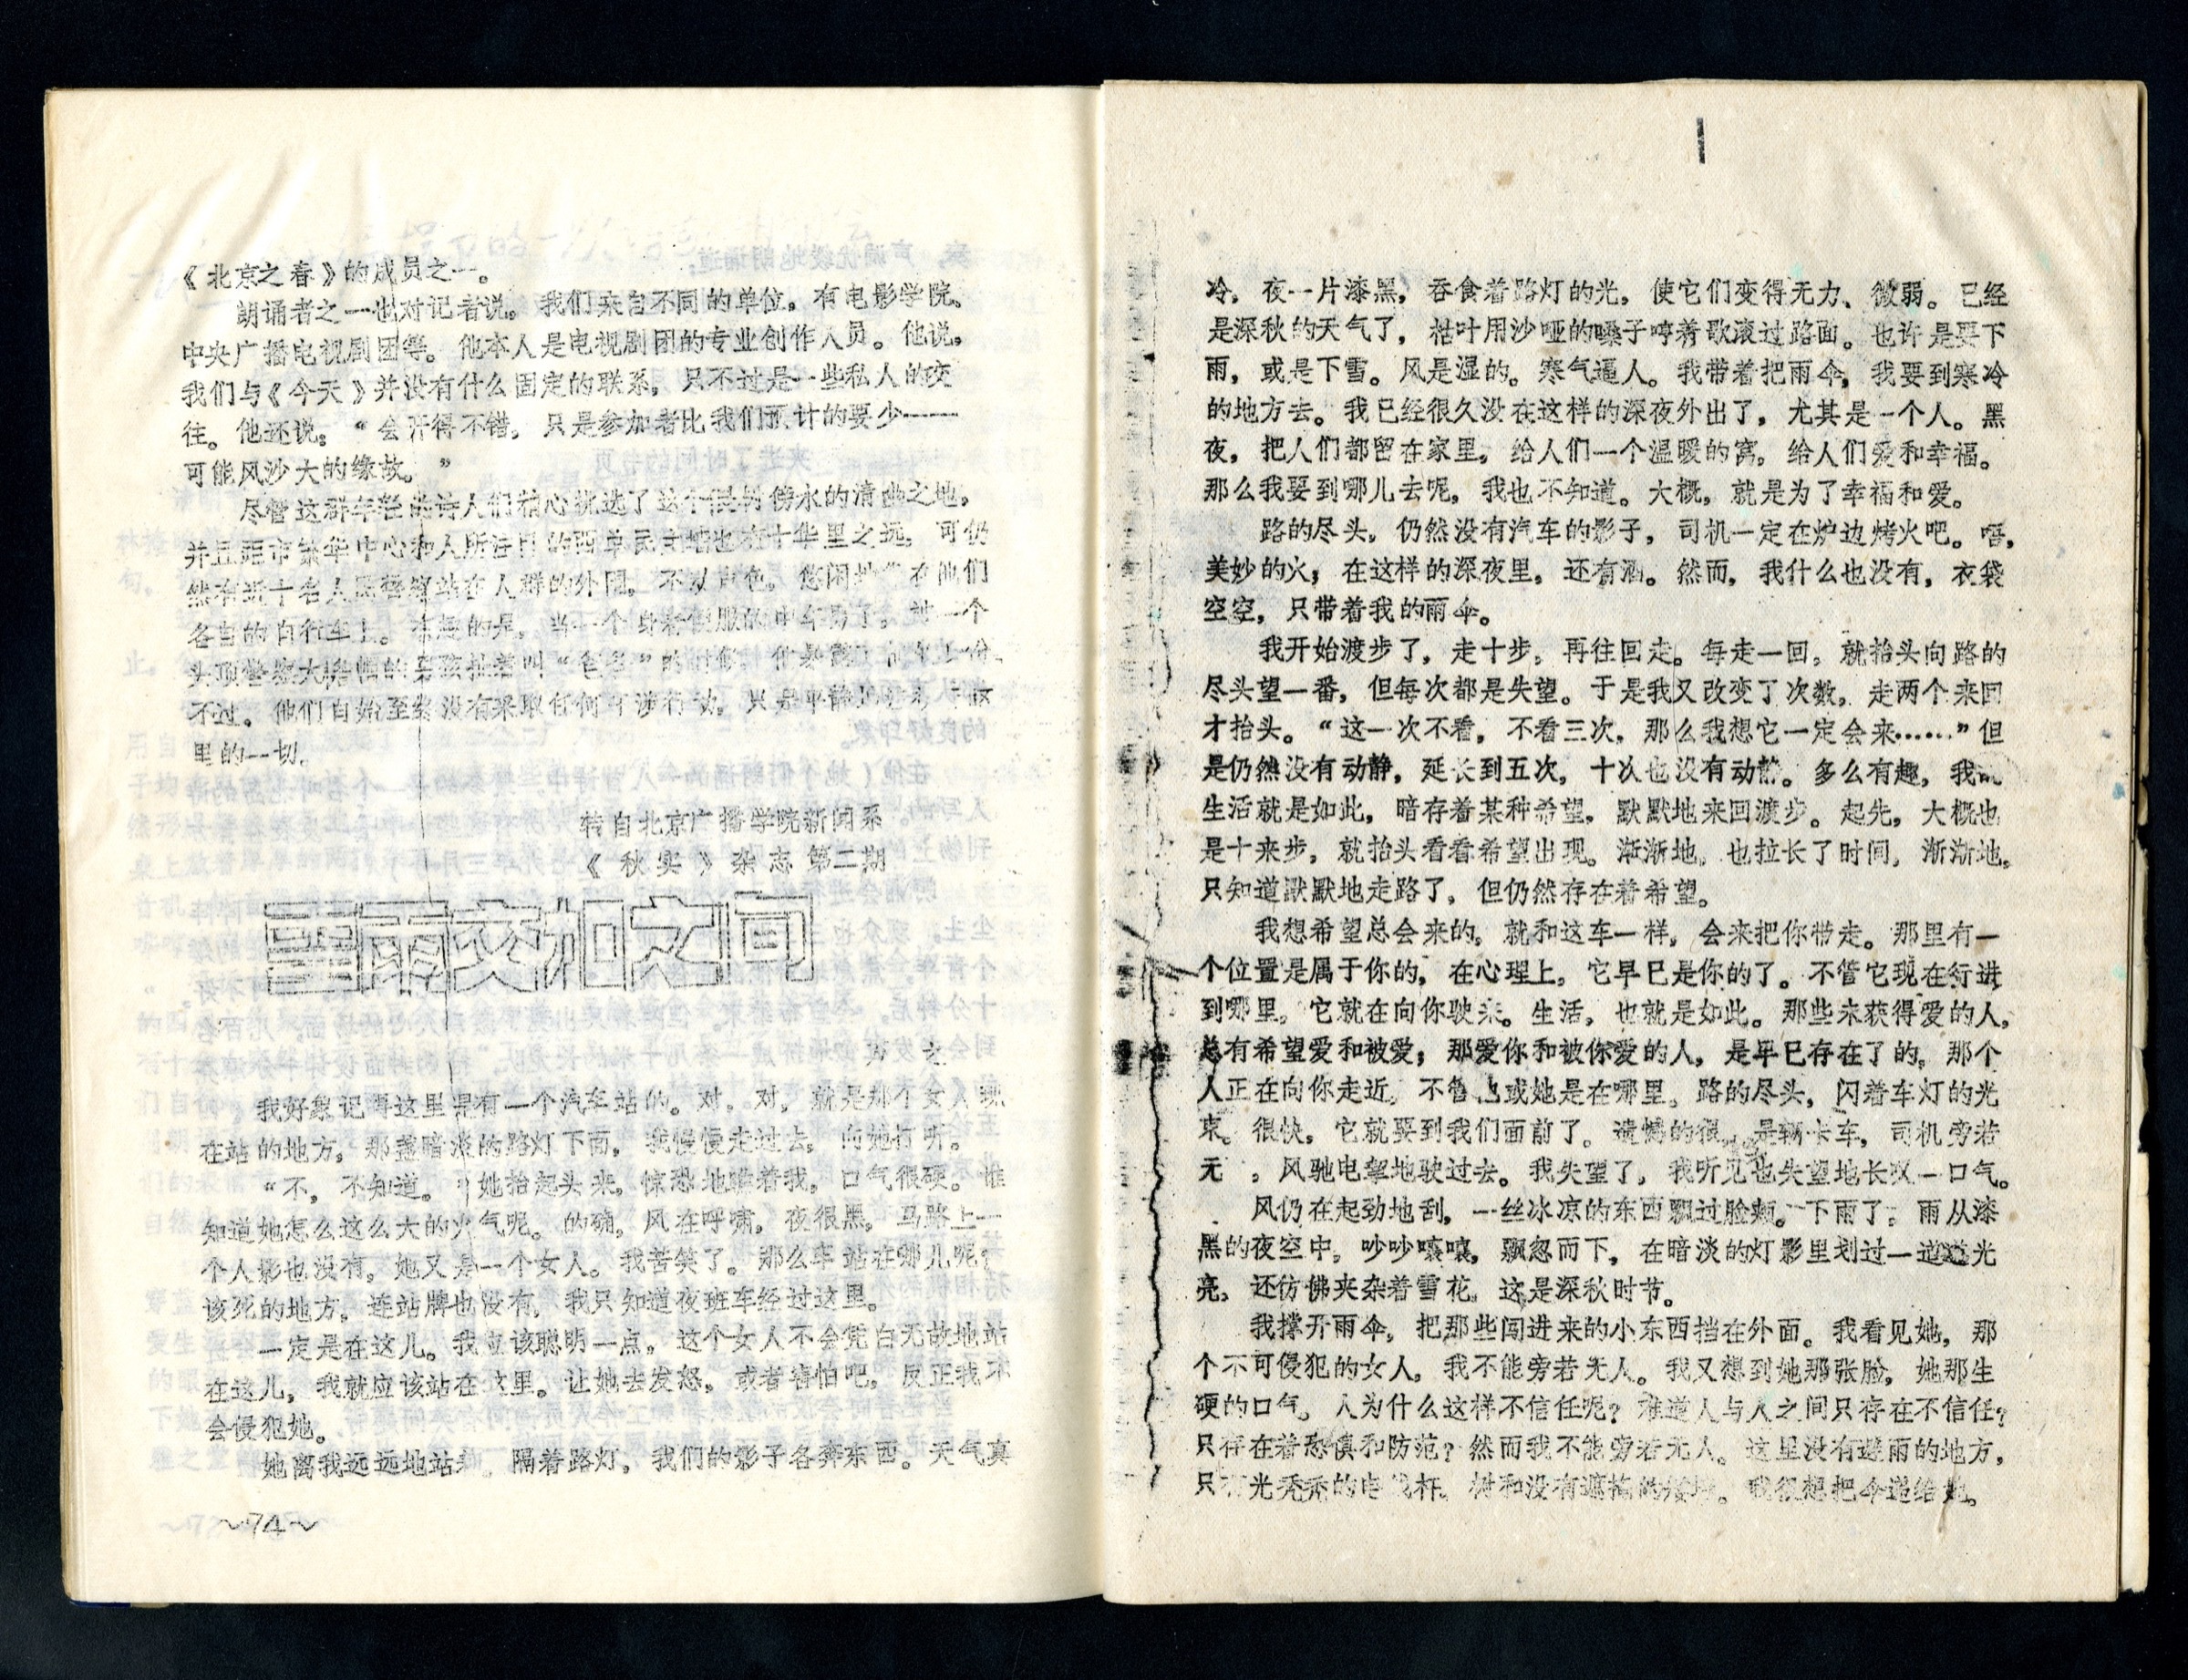 《北京之春》的成员之一。
朗诵者之一也对记者说。我们来自不同的单位。有电影学院。
中央广播电视剧团等。他本人是电视剧团的专业创作人员。他说，
我们与《今天》并没有什么固定的联系，只不过是一些私人的交
往。他还说：“会开得不错，只是参加者比我们预计的要少——
可能风沙大的缘故。”
尽管这群年轻的诗人们精心挑选了这个傍水的清幽之地，
并且距市繁华中心和人所注目的西单民主墙也有十华里之远，可仍
然有近十名人民警察站在人群的外围，不动声色，悠闲地在他们
各自的自行车上。有趣的是，当一个身着便服的中年男子。被一个
头顶警察大檐帽的男孩扯着叫“爸爸”的时候，
不过。他们自始至终没有采取任何干涉行动，只是平静
里的一切。
转自北京广播学院新闻系
《秋实》杂志第二期
雪雨交加之间
我好象记得这里是有一个汽车站的。对，对，就是那个女人现
在站的地方，那盏暗淡的路灯下面，我慢慢走过去，向她打听。
“不，不知道。”她抬起头来，惊恐地瞧着我，口气很硬。谁
知道她怎么这么大的火气呢。的确，风在呼啸，夜很黑，马路上一
个人影也没有。她又是一个女人。我苦笑了。那么车站在哪儿呢？
该死的地方，连站牌也没有，我只知道夜班车经过这里。
一定是在这儿。我应该聪明一点。这个女人不会凭白无故地站
在这儿，我就应该站在这里。让她去发怒，或者害怕吧，反正我不
会侵犯她。
她离我远远地站着，隔着路灯，我们的影子各奔东西。天气真
～74～
冷，夜一片漆黑，吞食着路灯的光，使它们变得无力、微弱。已经
是深秋的天气了，枯叶用沙哑的嗓子哼着歌滚过路面。也许是要下
雨，或是下雪。风是湿的。寒气逼人。我带着把雨伞，我要到寒冷
的地方去。我已经很久没在这样的深夜外出了，尤其是一个人。黑
夜，把人们都留在家里，给人们一个温暖的窝，给人们爱和幸福。
那么我要到哪儿去呢，我也不知道。大概，就是为了幸福和爱。
路的尽头，仍然没有汽车的影子，司机一定在炉边烤火吧。唔，
美妙的火；在这样的深夜里，还有酒。然而，我什么也没有，衣袋
空空，只带着我的雨伞。
我开始渡步了，走十步，再往回走。每走一回，就抬头向路的
尽头望一番，但每次都是失望。于是我又改变了次数，走两个来回
才抬头。“这一次不看，不看三次，那么我想它一定会来……”但
是仍然没有动静，延长到五次，十次也没有动静。多么有趣，我
生活就是如此，暗存着某种希望，默默地来回渡步。起先，大概也
是十来步，就抬头看看希望出现。渐渐地，也拉长了时间，渐渐地，
只知道默默地走路了，但仍然存在着希望。
我想希望总会来的，就和这车一样，会来把你带走。那里有一
个位置是属于你的，在心理上，它早已是你的了。不管它现在行进
到哪里，它就在向你驶来。生活，也就是如此。那些未获得爱的人，
总有希望爱和被爱；那爱你和被你爱的人，是早已存在了的，那个
人正在向你走近，不管或她是在哪里。路的尽头，闪着车灯的光
束。很快，它就要到我们面前了。遗憾的很，是辆卡车，司机旁若
无，风驰电掣地驶过去。我失望了，我听见也失望地长叹一口气。
风仍在起劲地刮，一丝冰凉的东西飘过脸颊。下雨了。雨从漆
黑的夜空中，吵吵嚷嚷，飘忽而下，在暗淡的灯影里划过一道道光
亮，还仿佛夹杂着雪花，这是深秋时节。
我撑开雨伞，把那些闯进来的小东西挡在外面。我看见她，那
个不可侵犯的女人，我不能旁若无人。我又想到她那张脸，她那生
硬的口气。人为什么这样不信任呢？难道人与人之间只存在不信任？
只存在着恐惧和防范？然而我不能旁若无人。这里没有避雨的地方，
只有光秃秃的电线杆，树和没有遮掩的。我很想把伞递给她。